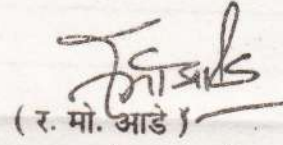 ( र. मो. आडे )